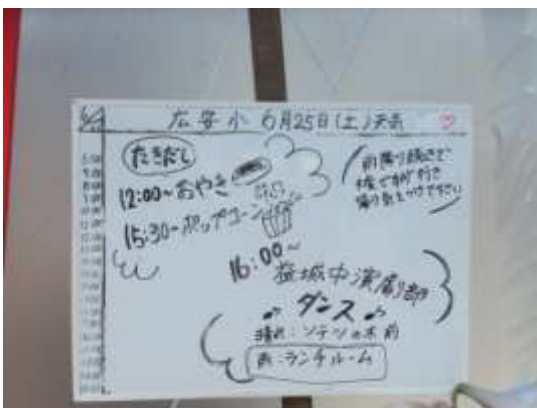 広安小 6月25日(土)天気
たきだし
12:00〜おやき
15:30〜ポップコーン
雨降り続きで
大変ですが行き
帰り気をつけて下さい
16:00〜
益城中演劇部
ダンス
晴れ:ソテツの木前
雨:ランチルーム